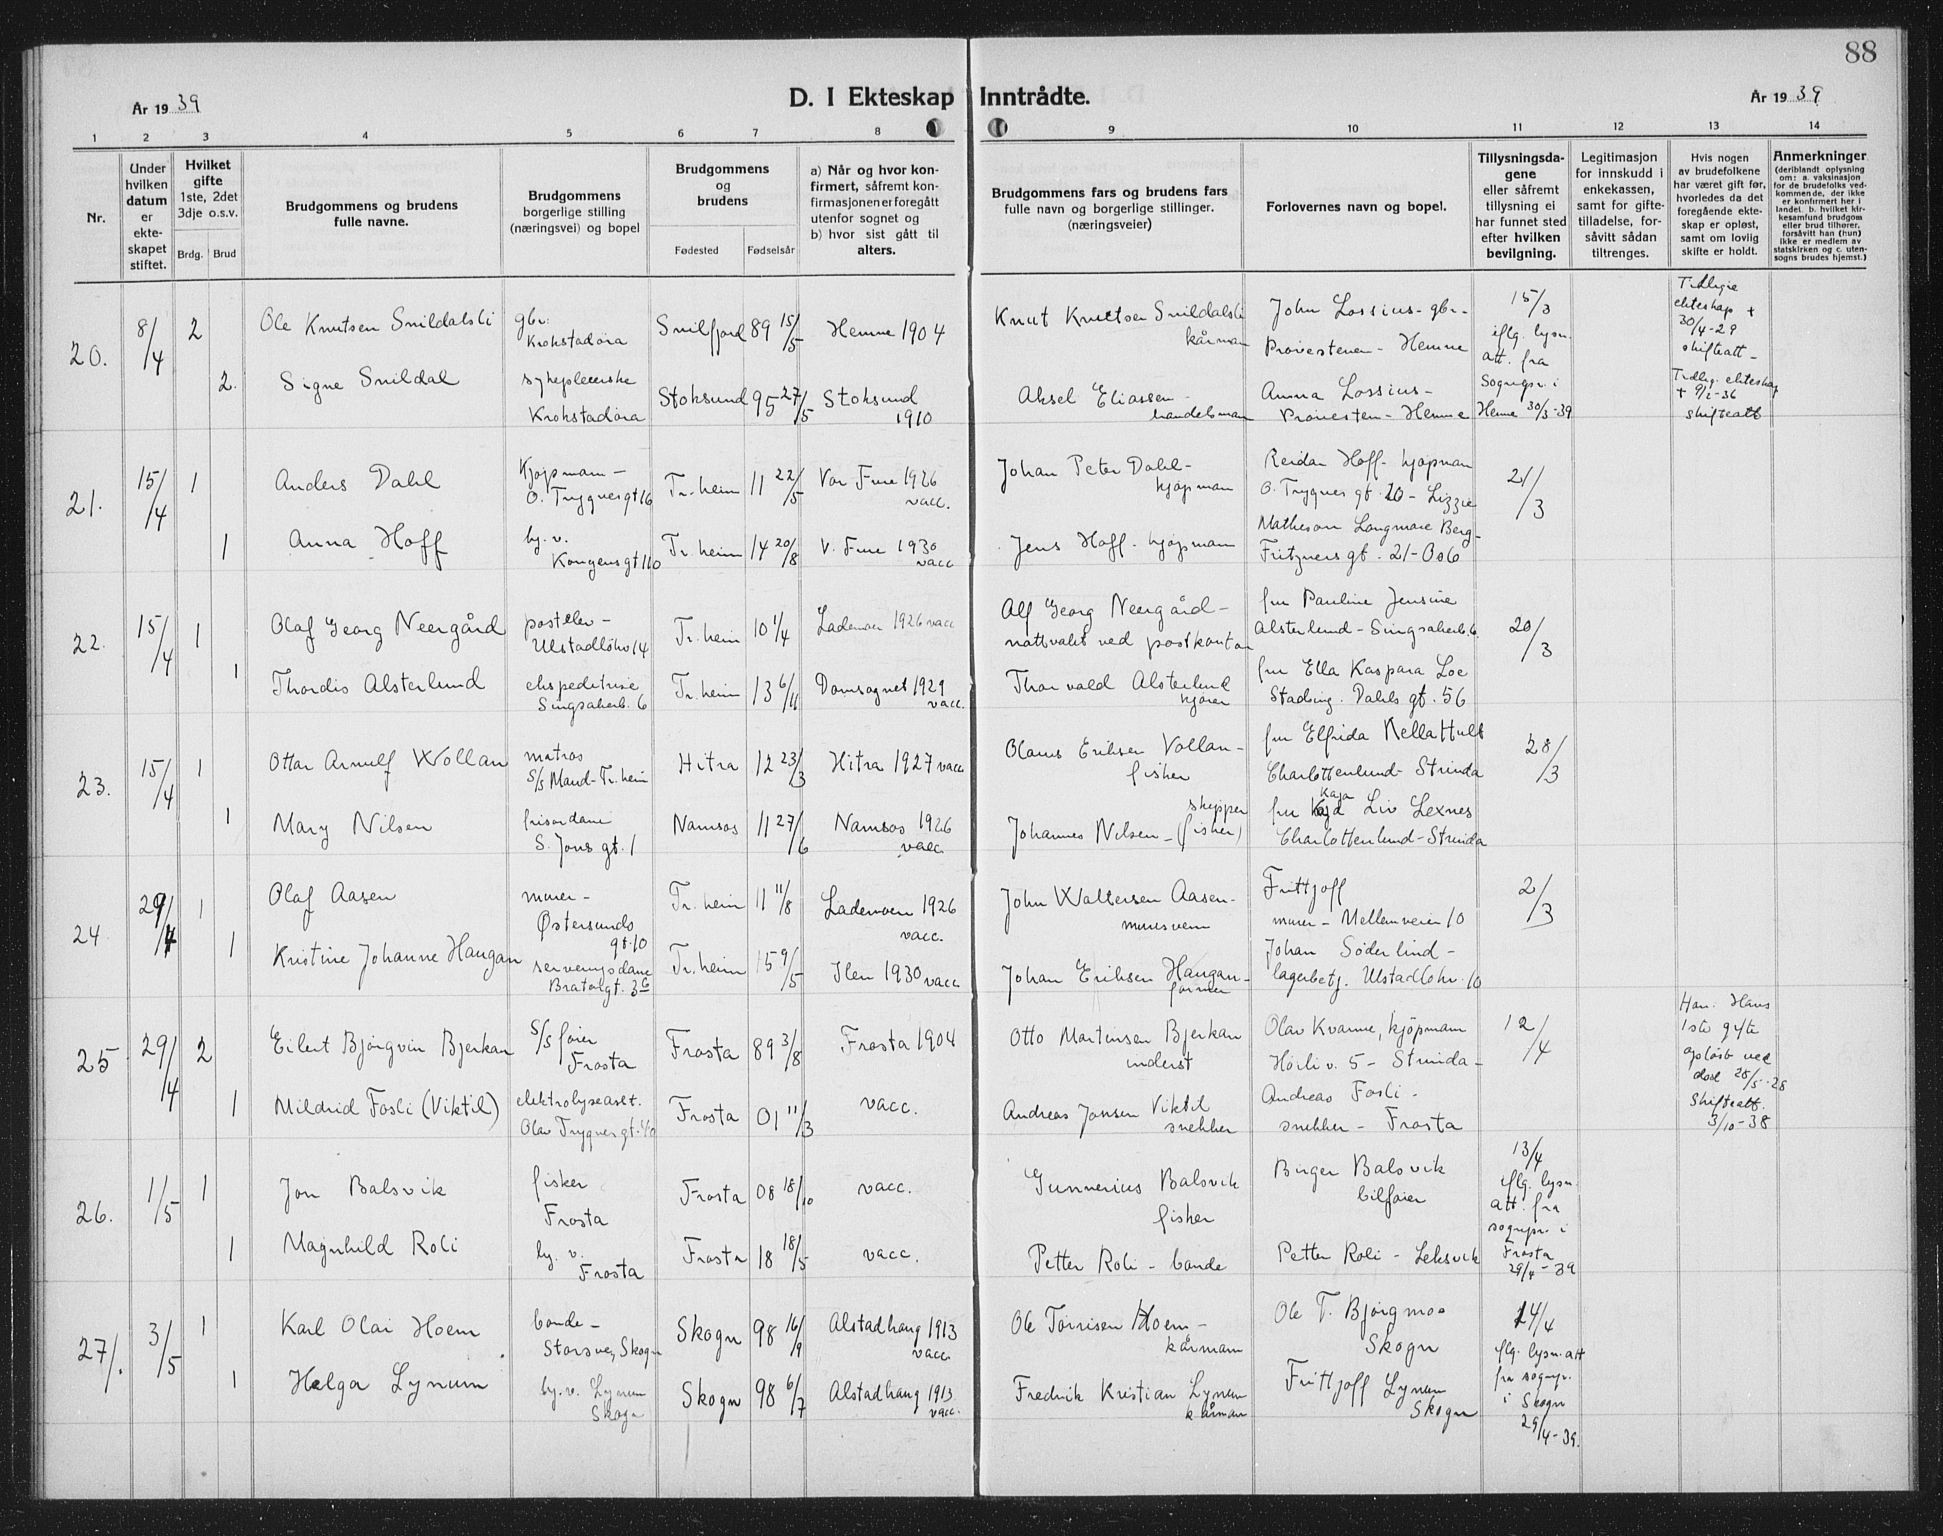 88
År 1939
D. I Ekteskap Inntrådte.
År 1939
1 2 3 4 5 6 7 8 9 10 11 12 13 14
Nr.
Under hvilken datum er ekteskapet stiftet.
Hvilket gifte 1ste, 2det 3dje o.s.v.
Brdg. Brud
Brudgommens og brudens fulle navne.
Brudgommens borgerlige stilling (næringsvei) og bopel
Brudgommens og brudens
Fødested Fødselsår
a) Når og hvor konfirmert, såfremt konfirmasjonen er foregått utenfor sognet og b) hvor sist gått til alters.
Brudgommens fars og brudens fars fulle navn og borgerlige stillinger. (næringsveier)
Forlovernes navn og bopel.
Tillysningsdagene eller såfremt tillysning ei har funnet sted efter hvilken bevilgning.
Legitimasjon for innskudd i enkekassen, samt for giftetilladelse, forsåvitt sådan tiltrenges.
Hvis nogen av brudefolkene har været gift før, hvorledes da det foregående ekteskap er opløst, samt om lovlig skifte er holdt.
Anmerkninger (deriblandt oplysning om: a. vaksinasjon for de brudefolks vedkommende, der ikke er konfirmert her i landet. b. hvilket kirkesamfund brudgom eller brud tilhører, forsåvitt han (hun) ikke er medlem av statskirken og c. utensogns brudes hjemst.)
20. 8/4 2 Ole Knutsen Snildalsli gbr. Krokstadøra Snilfjord 89 15/5 Hemne 1904 Knut Knutsen Snildalsli kårman John Lossius - gbr. - Prøvestenen - Hemne 15/3 iflg. lysn. att. fra Sognepr. i Hemne 30/3-39 Tidligere ekteskap + 30/4-29 skifteatt -
2. Signe Snildal sykepleierske Krokstadøra Stoksund 95 27/5 Stoksund 1910 Aksel Eliassen - handelsman Anna Lossius - Prøvesten - Hemne Tidlig. ekteskap + 9/2-36 skifteatt
21. 15/4 1 Anders Dahl Kjøpmann - O. Trygvesgt 16 Tr.heim 11 22/5 Vor Frue 1926 vacc. Johan Peter Dahl - kjøpman Reidar Hoff - kjøpman O. Trygves gt. 20 - Lizzie 21/3
1 Anna Hoff hj. v. Kongensgt 110 Tr.heim 14 20/8 V. Frue 1930 vacc Jens Hoff - kjøpmann Matheson Longmare Berg - Fritznersgt. 21 - Oslo
22. 15/4 1 Olaf Georg Neergård postelev - Ulstadløkv 14 Tr.heim 10 1/4 Lademoen 1926 vacc Alf Georg Neergård - nattvakt ved postkontor fru Pauline Jensine Alsterlund - Singsakerb. 6 20/3
1 Thordis Alsterlund ekspeditrise Singsakerb. 6 Tr.heim 13 6/11 Domsognet 1929 vacc. Thorvald Alsterlund kjører fru Ella Kaspara Loe Stadsing. Dahls gt. 56
23. 15/4 1 Ottar Arnulf Wollan matros S/S Maud - Tr.heim Hitra 12 23/3 Hitra 1927 vacc Olaus Eriksen Vollan - fisker fru Elfrida Charlottenlund - Strinda 28/3
1 Mary Nilsen frisørdame S. Jons gt. 1 Namsos 11 27/6 Namsos 1926 vacc. Johannes Nilsen - skipper (fisker) fru Kaja Liv Lexnes Charlottenlund - Strinda
24. 29/4 1 Olaf Aasen murer - Østersunds gt. 10 Tr.heim 11 11/8 Lademoen 1926 vacc. John Waltersen Aasen - mursvenn Frittjoff murer - Mellemveien 10 2/3
1 Kristine Johanne Haugan serveringsdame Bratølgt. 36 Tr.heim 15 9/5 Ilen 1930 vacc Johan Eriksen Haugan - former Johan Søderlind - lagerbetj. Ulstadløkv. 10
25 29/4 2 Eilert Bjørgvin Bjerkan S/S fører Frosta Frosta 89 3/8 Frosta 1904 Otto Martinsen Bjerkan inderst Olav Kvamme, kjøpmann Høili v. 5 - Strinda - 12/4 Han. Hans 1ste gifte opløst ved død 28/5-28 Skifteatt. 3/10-38
1 Mildrid Fosli (Viktil) elektrolyseast. Olav Trygvesgt. 40 Frosta 01 11/3 vacc. Andreas Jonsen Viktil snekker Andreas Fosli - snekker - Frosta
26. 1/5 1 Jon Balsvik fisker Frosta Frosta 08 18/10 vacc. Gunnerius Balsvik fisker Birger Balsvik bilfører 13/4 iflg. lysn. att. fra sognepr. i Frosta 29/4-39
1 Magnhild Roli hj. v. Frosta Frosta 18 18/5 vacc. Petter Roli - bonde Petter Roli - Leksvik
27/. 3/5 1 Karl Olai Hoem bonde - Storsve, Skogn Skogn 98 16/9 Alstadhaug 1913 vacc. Ole Tørrisen Hoem - kårmann Ole T. Bjørgmo Skogn 14/4 iflg. lysn. att fra sognepr. i Skogn 29/4-39.
1 Helga Lynum hj. v. Lynum Skogn Skogn 98 6/7 Alstadhaug 1913 vacc. Fredrik Kristian Lynum kårman Frittjoff Lynum Skogn